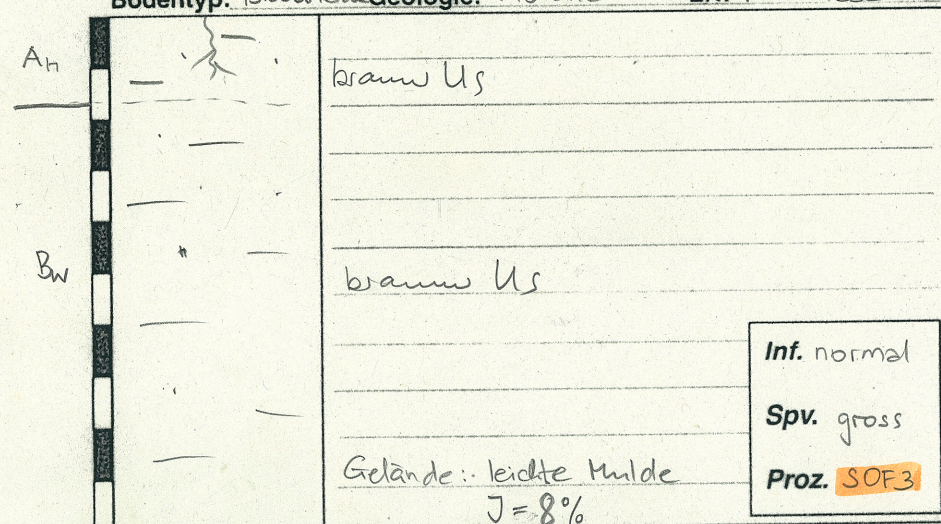 Bodentyp: Geologie:
Ah
braun Us
Bw
braun Us
Inf. normal
Spv. gross
Proz. SOF3
Gelände: leichte Mulde
J = 8%